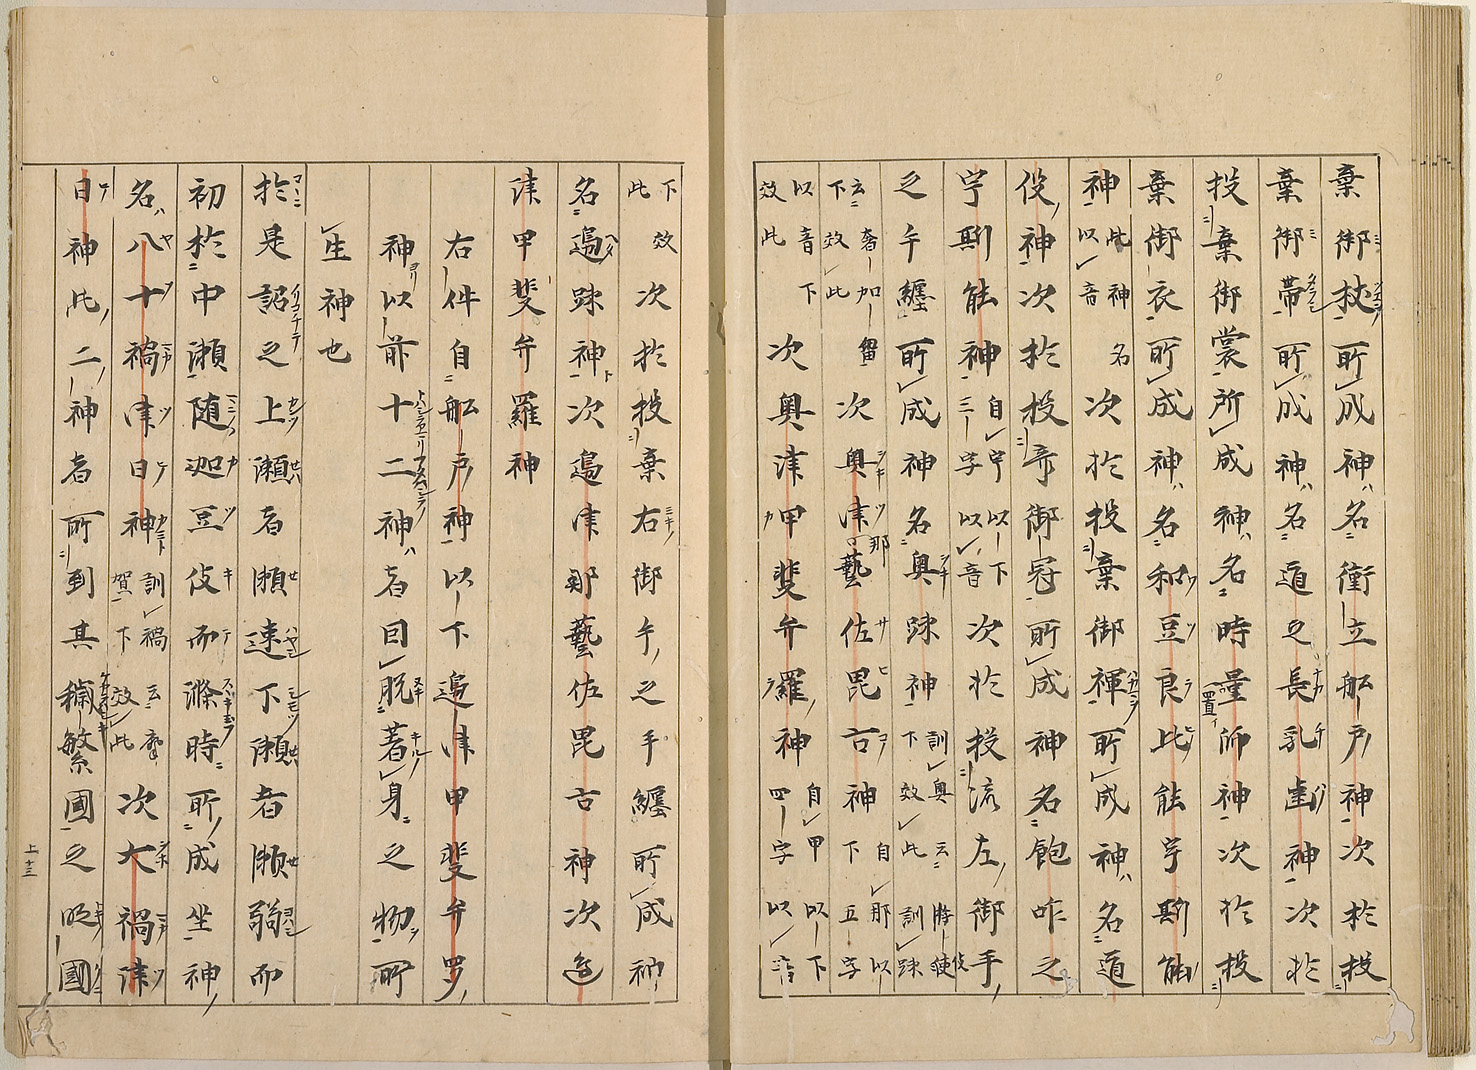 棄御杖所成神名衝立船戸神次於投
棄御帯所成神名道之長乳歯神次於
投棄御裳所成神名時量師神次於投
棄御衣所成神名和豆良比能宇斯能
神此神名以音次於投棄御褌所成神名道
俣神次於投棄御冠所成神名飽咋之
宇斯能神自宇以下三字以音次於投流左御手
之手纏所成神名奥疎神訓奥云於伎下效此訓疎
云奢加留下效此次奥津那藝佐毘古神自那以下五字
以音下效此次奥津甲斐弁羅神自甲以下四字以音
下效此次於投棄右御手之手纏所成神
名邊疎神次邊津那藝佐毘古神次邊
津甲斐弁羅神
右件自船戸神以下邊津甲斐弁羅
神以前十二神者因脱著身之物所
生神也
於是詔之上瀬者瀬速下瀬者瀬弱而
初於中瀬随迦豆伎而滌時所成坐神
名八十禍津日神訓禍云摩賀下效此次大禍津
日神此二神者所到其穢繁國之國
上十三